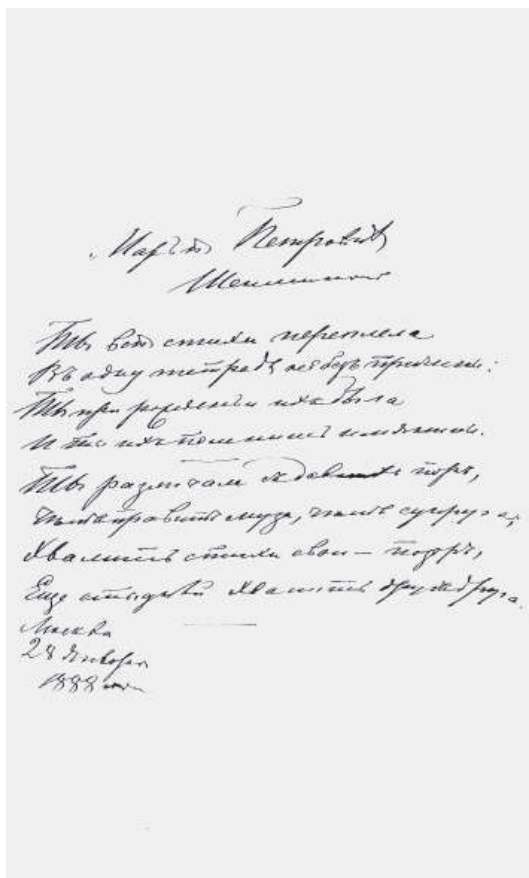 Марьѣ Петровнѣ
Шеншиной
Ты всѣ стихи переплела
Въ одну тетрадь не безъ причины:
Ты при рожденьи ихъ была
И ты ихъ помнишь именины.
Ты различала съ давнихъ поръ,
Чѣмъ правитъ муза, чѣмъ супруга,
Хвалить стихи свои — позоръ,
Еще стыднѣй хвалить другъ друга.
Москва
28 Января
1888